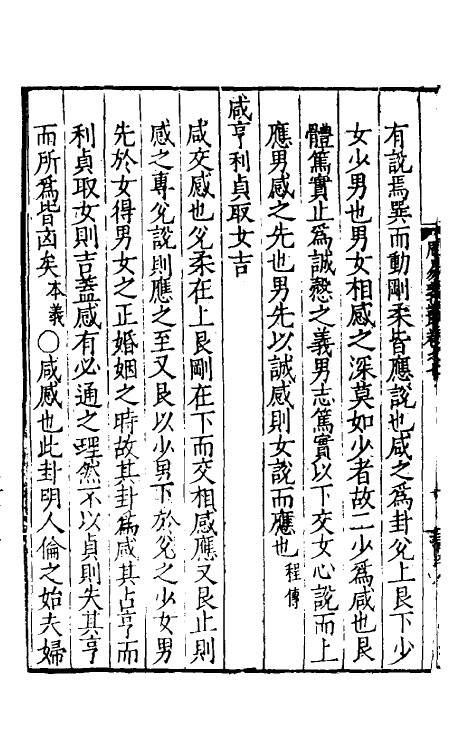 有說焉巽而動剛柔皆應說也咸之為卦兌上艮下少
女少男也男女相感之深莫如少者故二少為咸也艮
體篤實止為誠慤之義男志篤實以下交女心說而上
應男感之先也男先以誠感則女說而應也程傳
咸亨利貞取女吉
咸交感也兌柔在上艮剛在下而交相感應又艮止則
感之專兌說則應之至又艮以少男下於兌之少女男
先於女得男女之正婚姻之時故其卦為咸其占亨而
利貞取女則吉葢感有必通之理然不以貞則失其亨
而所為皆凶矣本義○咸感也此卦明人倫之始夫婦